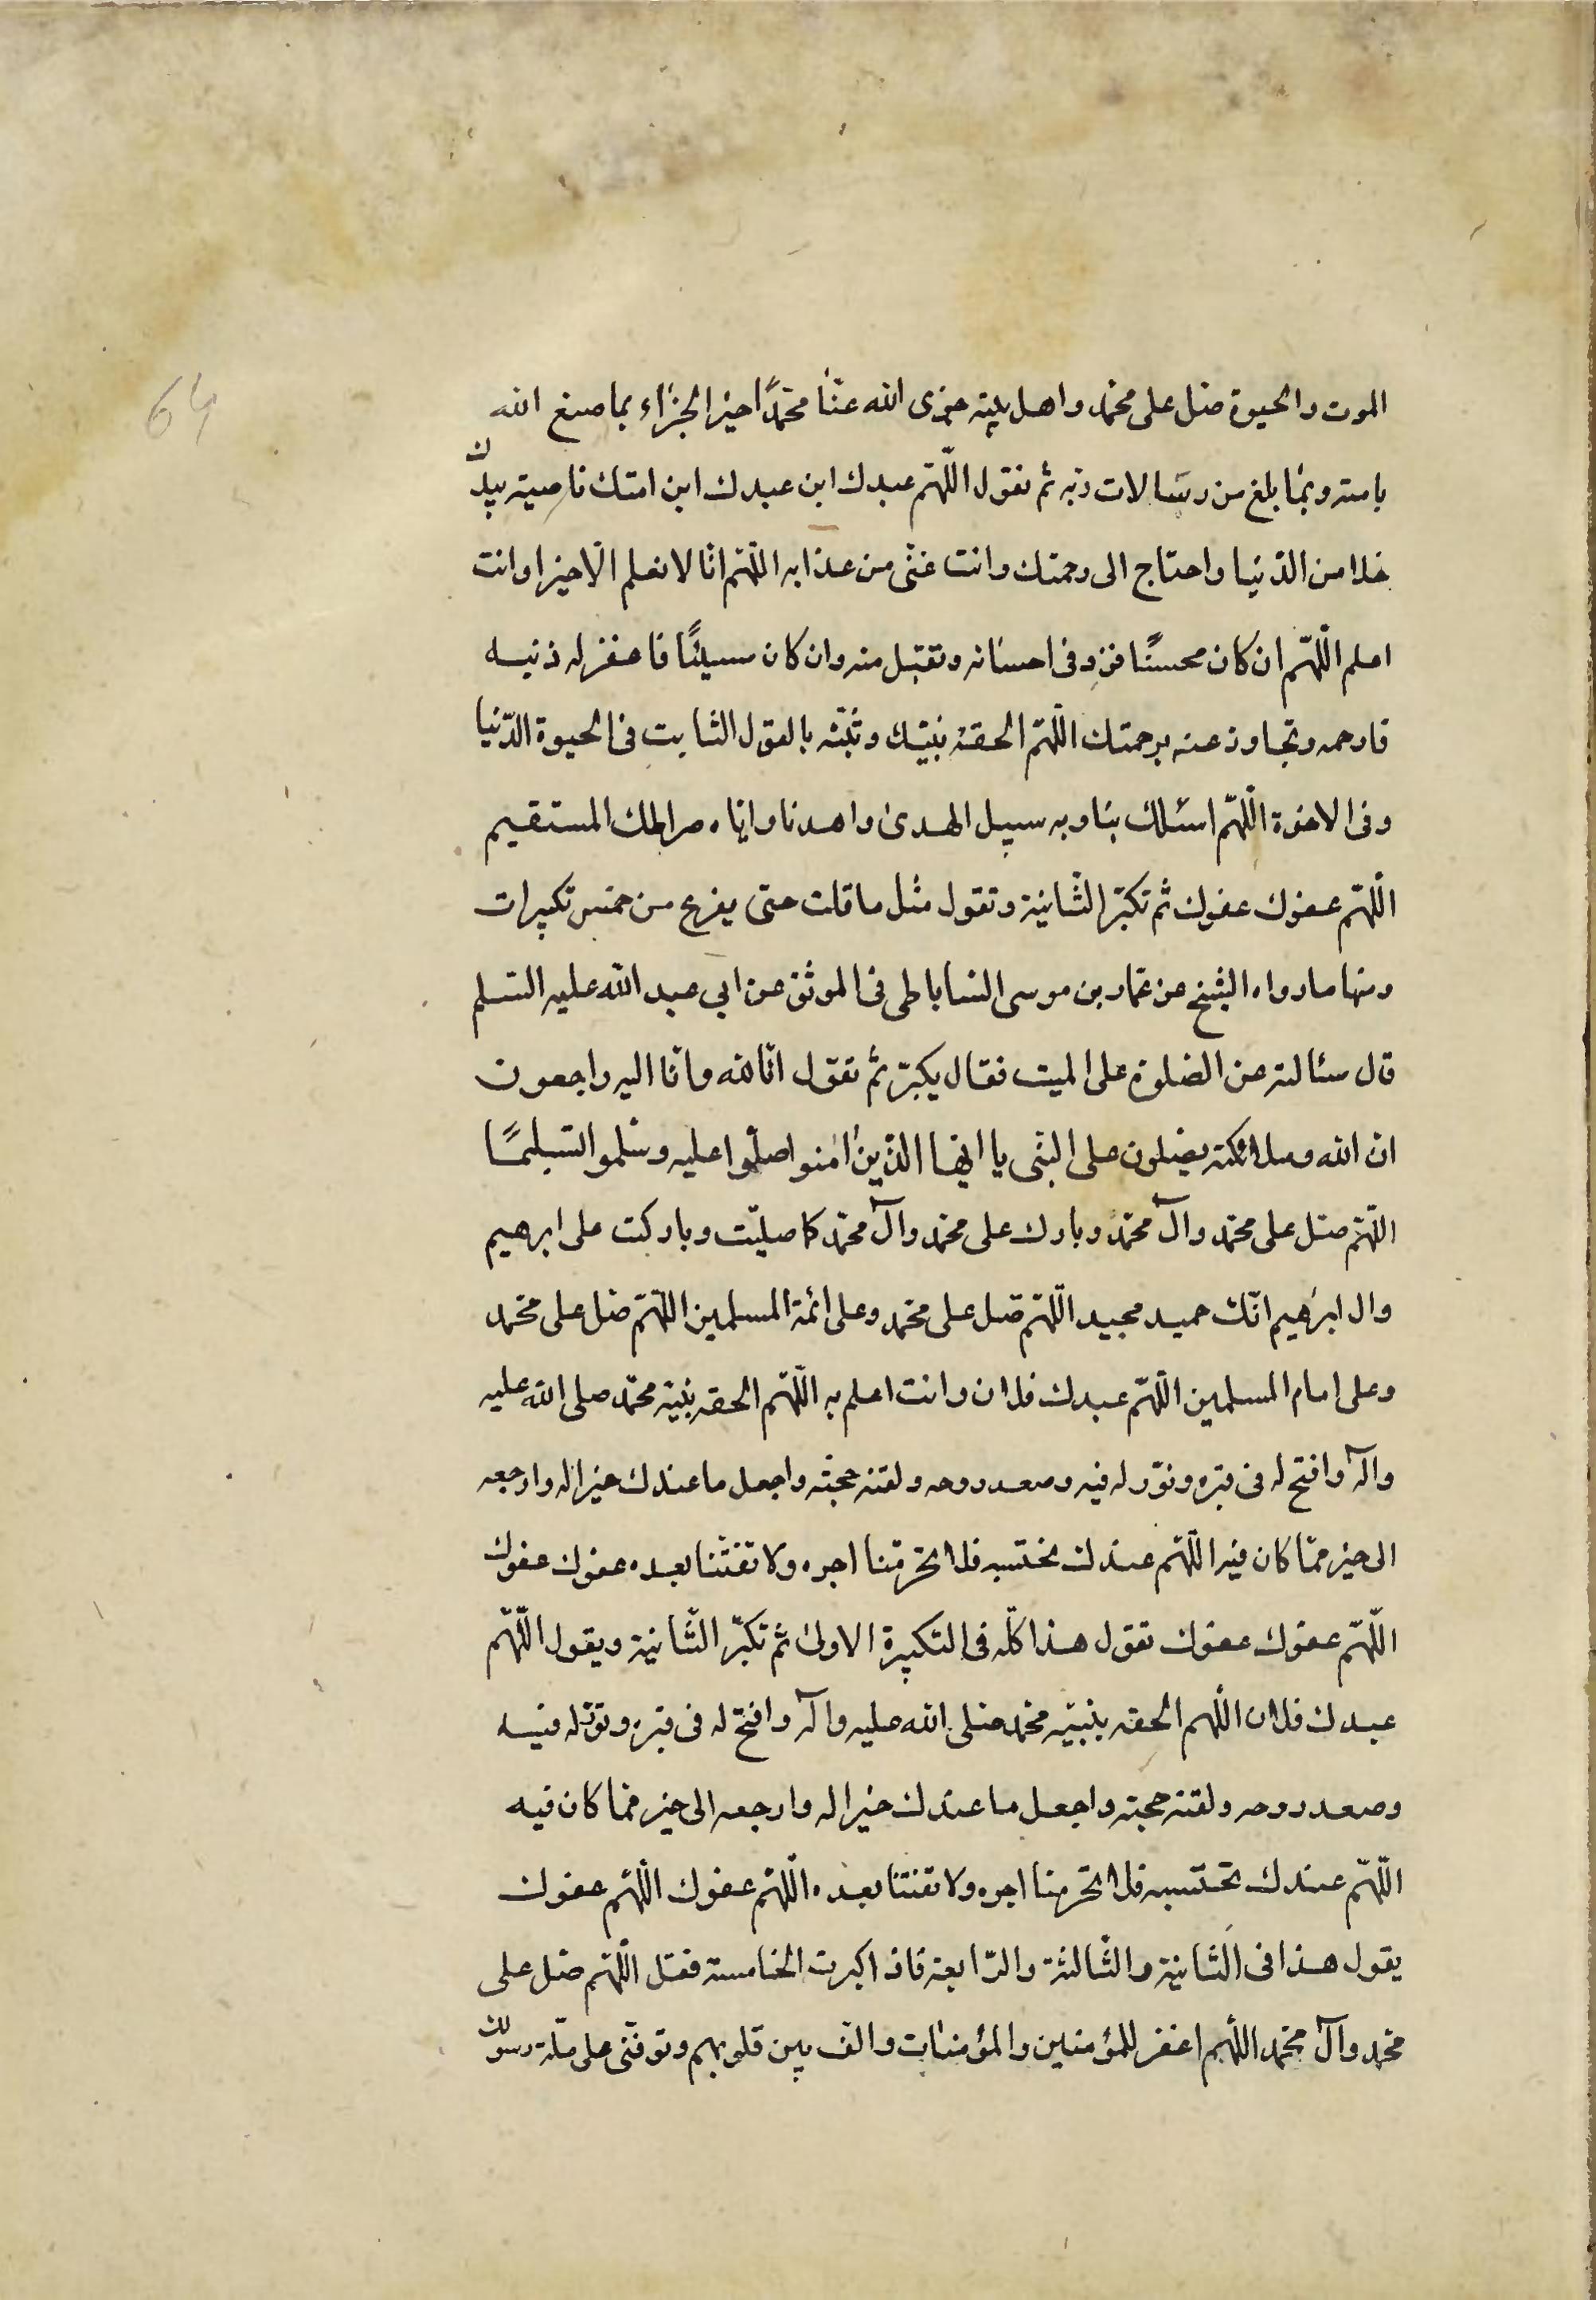 64
الموت والحيوة صل على محمد واهل بيته جزى الله عنّا محمدًا خير الجزاء بما صنع الله
بامته وبما بلغ من رسالات ربه ثم تقول اللّهمّ عبدك ابن عبدك ابن امتك ناصيته بيدك
خلا من الدّنيا واحتاج الى رحمتك وانت غنى من عذابه اللّهمّ انّا لا نعلم الّا خيرا وانت
اعلم اللّهمّ ان كان محسنًا فزد فى احسانه وتقبّل منه وان كان مسيئًا فاغفر له ذنبه
فارحمه وتجاوز عنه برحمتك اللّهمّ الحقه بنبيّك وثبّته بالقول الثابت فى الحيوة الدّنيا
وفى الاخرة اللّهمّ اسئلك بنا وبه سبيل الهدى واهدنا وايّاه صراطك المستقيم
اللّهمّ عفوك عفوك ثم تكبّر الثّانية وتقول مثل ما قلت حتى يفرغ من خمس تكبيرات
ومنها ما رواه الشيخ عن عمّار بن موسى الساباطى فى الموثق عن ابى عبد الله عليه السّلم
قال سئالته عن الصّلوة على الميت فقال يكبّر ثم تقول انّا لله وانّا اليه راجعون
ان الله وملائكته يصلون على النّبى يا ايّها الذّين امنوا صلّوا عليه وسلّموا تسليمًا
اللّهمّ صلّ على محمّد وآل محمّد وبارك على محمّد وآل محمّد كما صليّت وباركت على ابرهيم
وال ابرهيم انّك حميد مجيد اللّهمّ صلّ على محمّد وعلى ائمة المسلمين اللّهمّ صلّ على محمد
وعلى امام المسلمين اللّهمّ عبدك فلان وانت اعلم به اللّهمّ الحقه بنبيّه محمّد صلى الله عليه
وآله وافتح له فى قبره ونوّر له فيه وصعد روحه ولقنه حجّته واجعل ما عندك خيرا له وارجعه
الى خير ممّا كان فيه اللّهمّ عندك نحتسبه فلا تحرمّنا اجره ولا تفتنّا بعده عفوك عفوك
اللّهمّ عفوك عفوك تقول هذا كلّه فى التكبيرة الاولى ثم تكبّر الثّانية ويقول اللّهمّ
عبدك فلان اللّهم الحقه بنبيّه محمّد صلى الله عليه وآله وافتح له فى قبره ونوّر له فيه
وصعد روحه ولقنه حجته واجعل ما عندك خيرا له وارجعه الى خير ممّا كان فيه
اللّهمّ عندك تحتسبه فلا تحرمنا اجره ولا تفتنا بعده اللّهمّ عفوك اللّهم عفوك
يقول هذا فى الثّانية والثّالثة والرّابعة فاذا كبرت الخامسة فقل اللّهمّ صلّ على
محمّد وآل محمّد اللّهم اغفر للمؤمنين والمؤمنات والّف بين قلوبهم وتوفّنى على ملّة رسولك